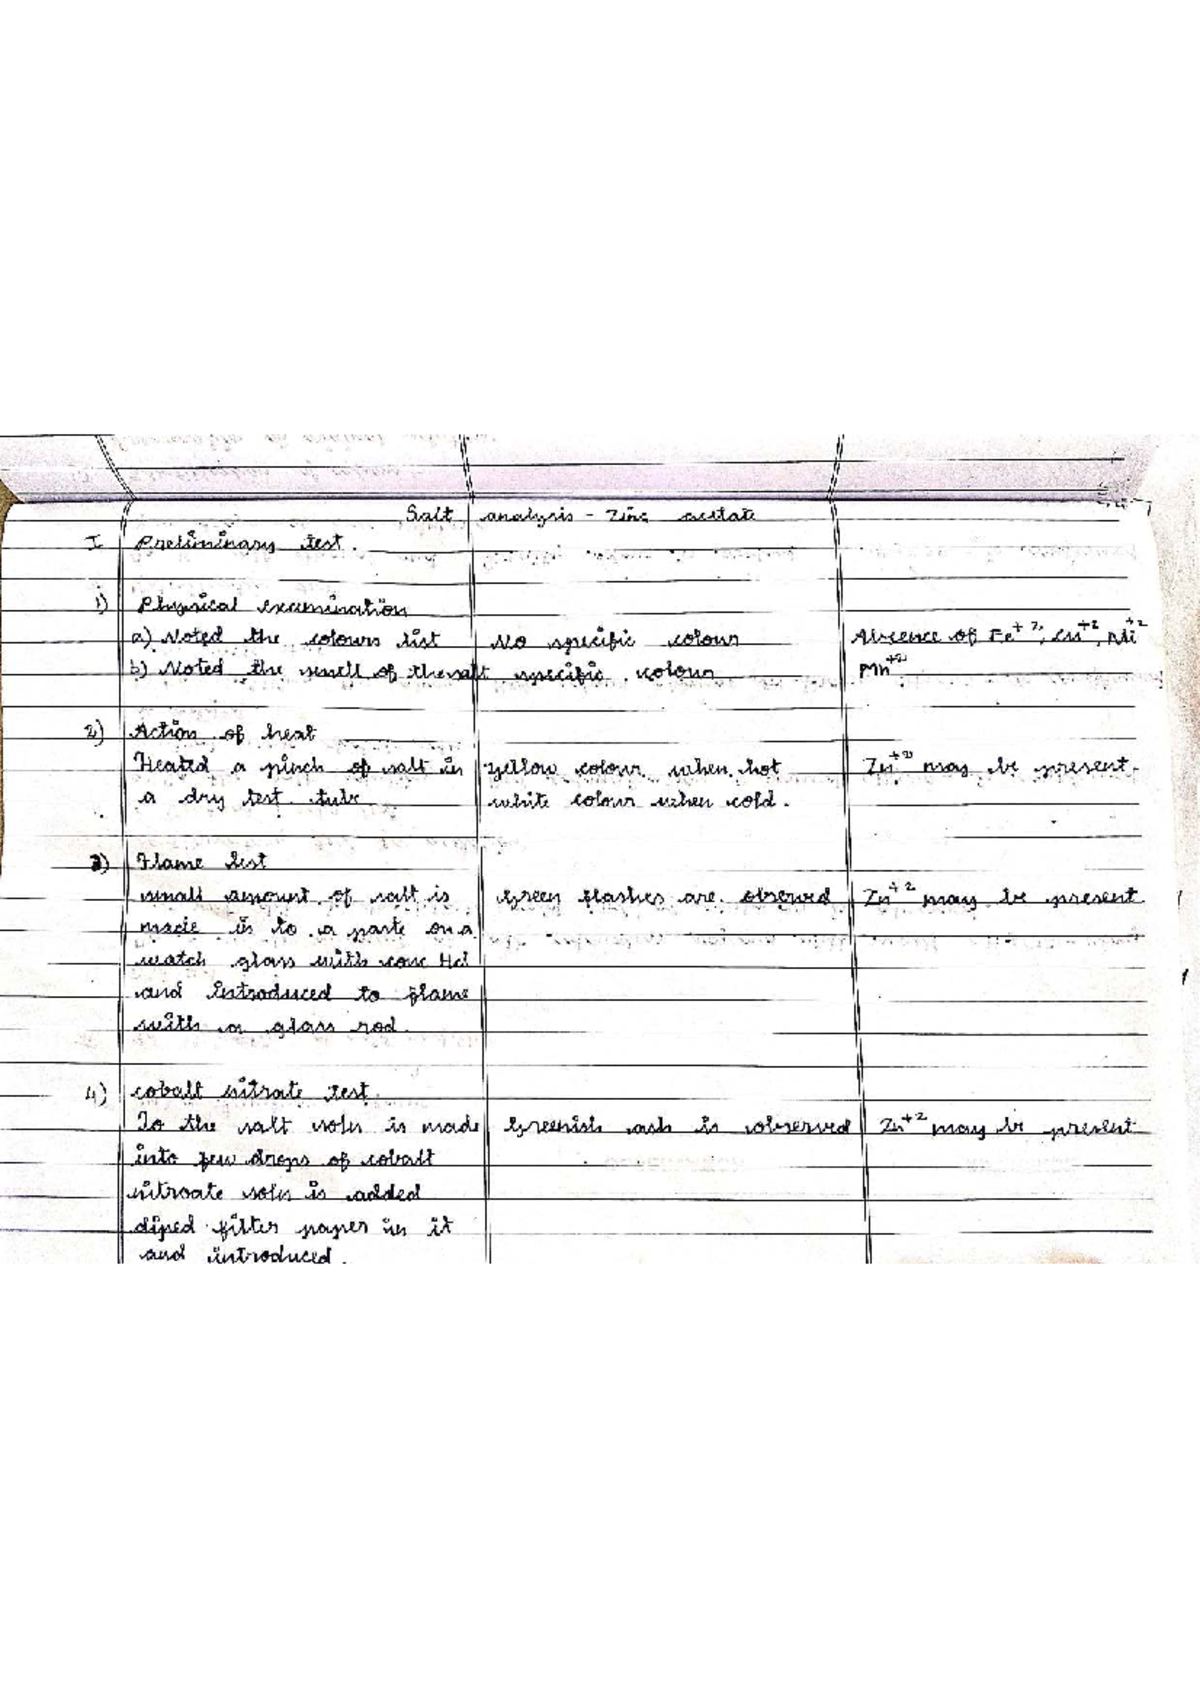 Salt analysis - Zinc acetate
I Preliminary test.
1) Physical examination
a) Noted the colours list No specific colour Absence of Fe+2, Cu+2, Ni+2
b) Noted the smell of the salt specific colour Mn+2
2) Action of heat
Heated a pinch of salt in yellow colour when hot Zn+2 may be present.
a dry test tube white colour when cold.
3) Flame test
small amount of salt is Green flashes are observed Zn+2 may be present
made in to a paste on a
watch glass with conc Hcl
and introduced to flame
with a glass rod.
4) cobalt nitrate test.
To the salt soln is made Greenish ash is observed Zn+2 may be present
into few drops of cobalt
nitroate soln is added
diped filter paper in it
and introduced.